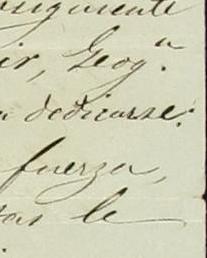 nsiguiente
ir, Geog.ⁿ
a dedicarse:
fuerza,
tas le